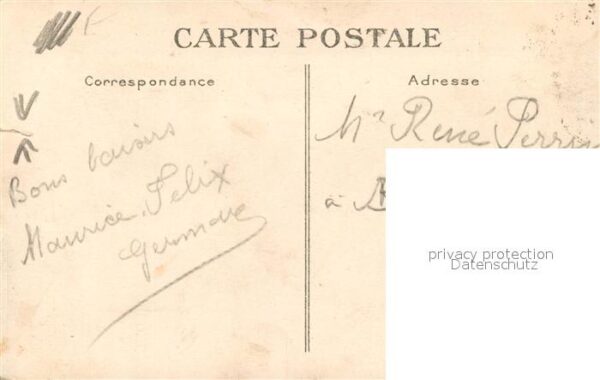 F
CARTE POSTALE
Correspondance
Bons baisers
Maurice, Felix
Germaine
Adresse
Mr René Perrin
à
privacy protection
Datenschutz